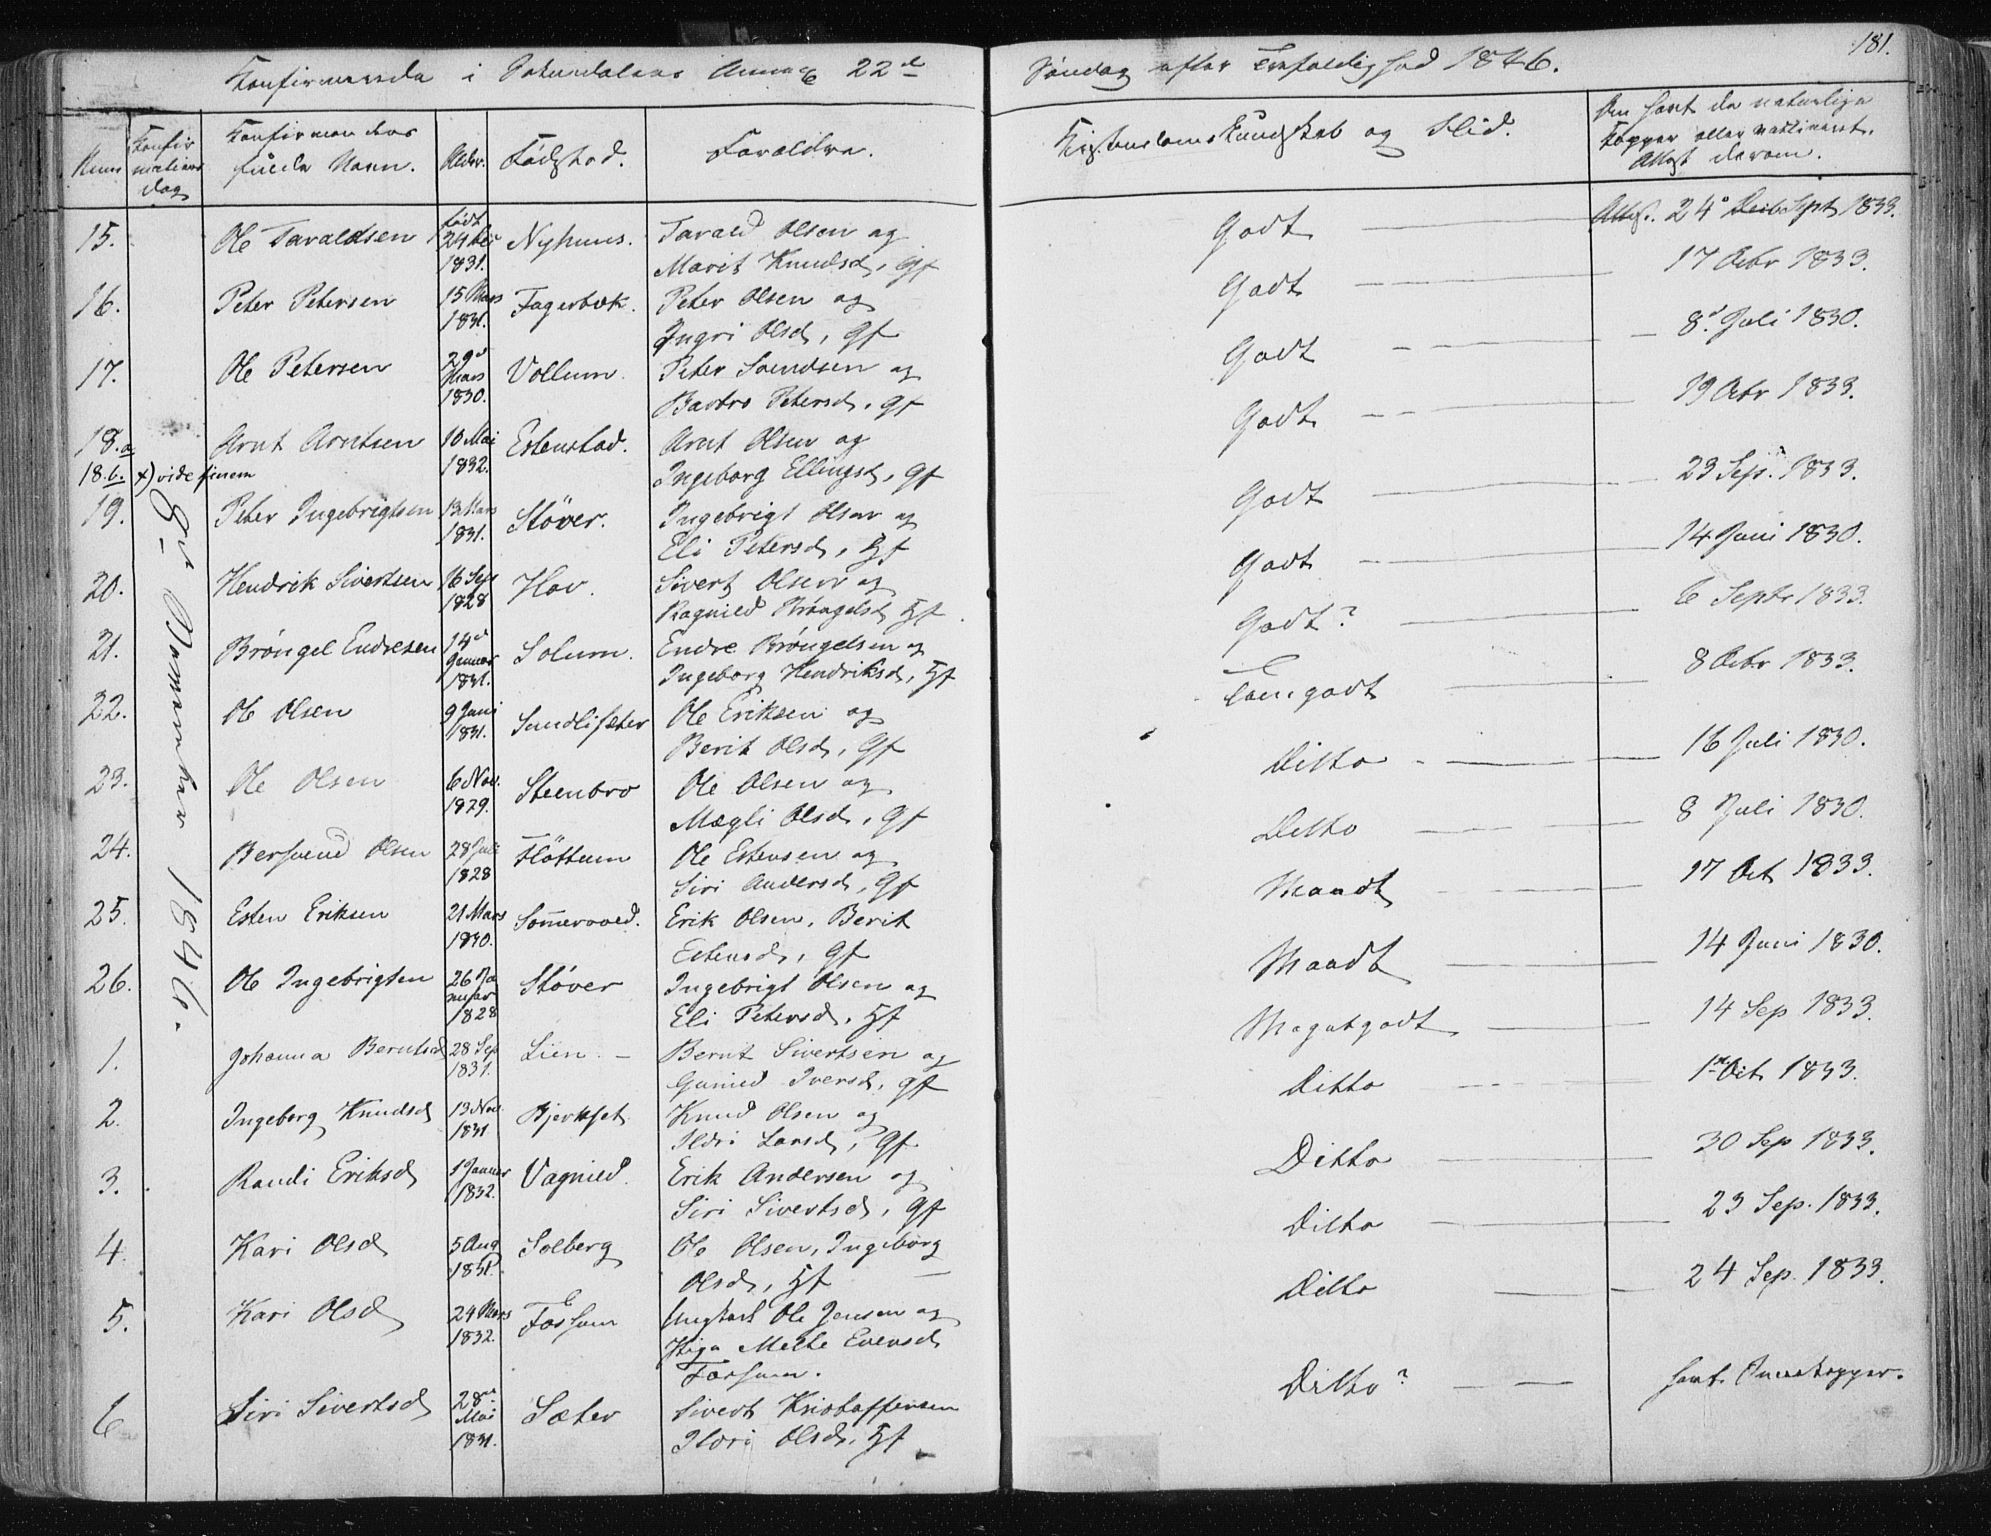 181.
Konfirmerede i Sokendalens Annex 22d Søndag efter Trefoldighed 1846.
Num
Konfir
mations
dag
Konfirmandens
fulde Navn.
Alder.
Fødested.
Forældre.
Kristendoms Kundskab og Flid.
Om havt de naturlige
Kopper eller vaccineret.
Attest derom.
8d November 1846.
15. Ole Taraldsen født 24 1831. Nyhuus. Tarald Olsen og
Marit Knudsd, Gf Godt Attest. 24 Sept 1833.
16. Peter Petersen 15 Mars 1831. Fagerbæk. Peter Olsen og
Ingri Olsd, Gf Godt 17 Octbr 1833.
17. Ole Petersen 29d Mars 1830. Vollum. Peter Svendsen og
Barbro Petersd, Gf Godt 8d Juli 1830.
18.a Arnt Arntsen 10 Mai 1832. Estenstad. Arnt Olsen og
Ingeborg Ellingsd, Gf Godt 19 Octbr 1833.
18.b. x) vide finem
19. Peter Ingebrigtsen 13 Mars 1831. Støver. Ingebrigt Olsen og
Eli Petersd, Hf Godt 23 Sep. 1833.
20. Hendrik Sivertsen 16 Sept 1828 Hov. Sivert Olsen og
Ragnild Brøngelsd Hf Godt 14 Juni 1830.
21. Brøngel Endresen 14d Januar 1831. Solum. Endre Brøngelsen og
Ingeborg Hendriksd, Hf Godt? 6 Septr 1833.
22. Ole Olsen 9 Juni 1831. Sundlisæter Ole Eriksen og
Berit Olsd, Gf Temgodt 8 Octbr 1833.
23. Ole Olsen 6 Nov. 1829. Steenbro Ole Olsen og
Magli Olsd, Gf Ditto 16 Juli 1830.
24. Bersvend Olsen 28 Juli 1828 Fløttum Ole Estensen og
Siri Andersd, Gf Ditto 8 Juli 1830.
25. Esten Eriksen 21 Mars 1830. Sommervold. Erik Olsen, Berit
Estensd, Gf Maadt 17 Oct 1833.
26. Ole Ingebrigtsen 26 Januar 1828 Støver Ingebrigt Olsen og
Eli Petersd, Hf Maadt 14 Juni 1830.
1. Johanna Berntsd 28 Sep 1831. Lien. Bernt Sivertsen og
Gunild Iversd, Gf Megetgodt 14 Sep 1833.
2. Ingeborg Knudsd 13 Nov. 1831 Bjerkset Knud Olsen og
Ildri Larsd, Gf Ditto 1ste Oct 1833.
3. Randi Eriksd 1 Januar 1832. Vagnild. Erik Andersen og
Siri Sivertsd, Gf Ditto 30 Sep 1833.
4. Kari Olsd 5 Aug 1831. Solberg Ole Olsen, Ingeborg
Olsd, Hf Ditto 23 Sep. 1833.
5. Kari Olsd 24 Mars 1832. Fossum Ungkarl Ole Jensen og
Pige Mette Evensd
Fossum. Ditto 24 Sep. 1833.
6 Siri Sivertsd 28de Mai 1831. Sæter Sivert Kristoffersen
Ildri Olsd. Hf Ditto?